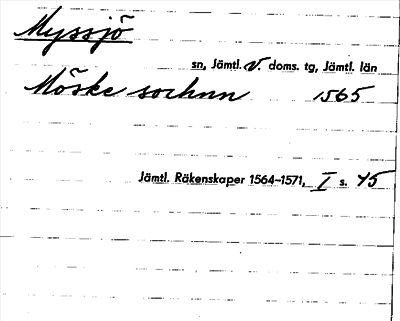 Myssjö
sn, Jämtl. v. doms. tg, Jämtl. län
Möske sochnn 1565
Jämtl. Räkenskaper 1564-1571, I s. 45